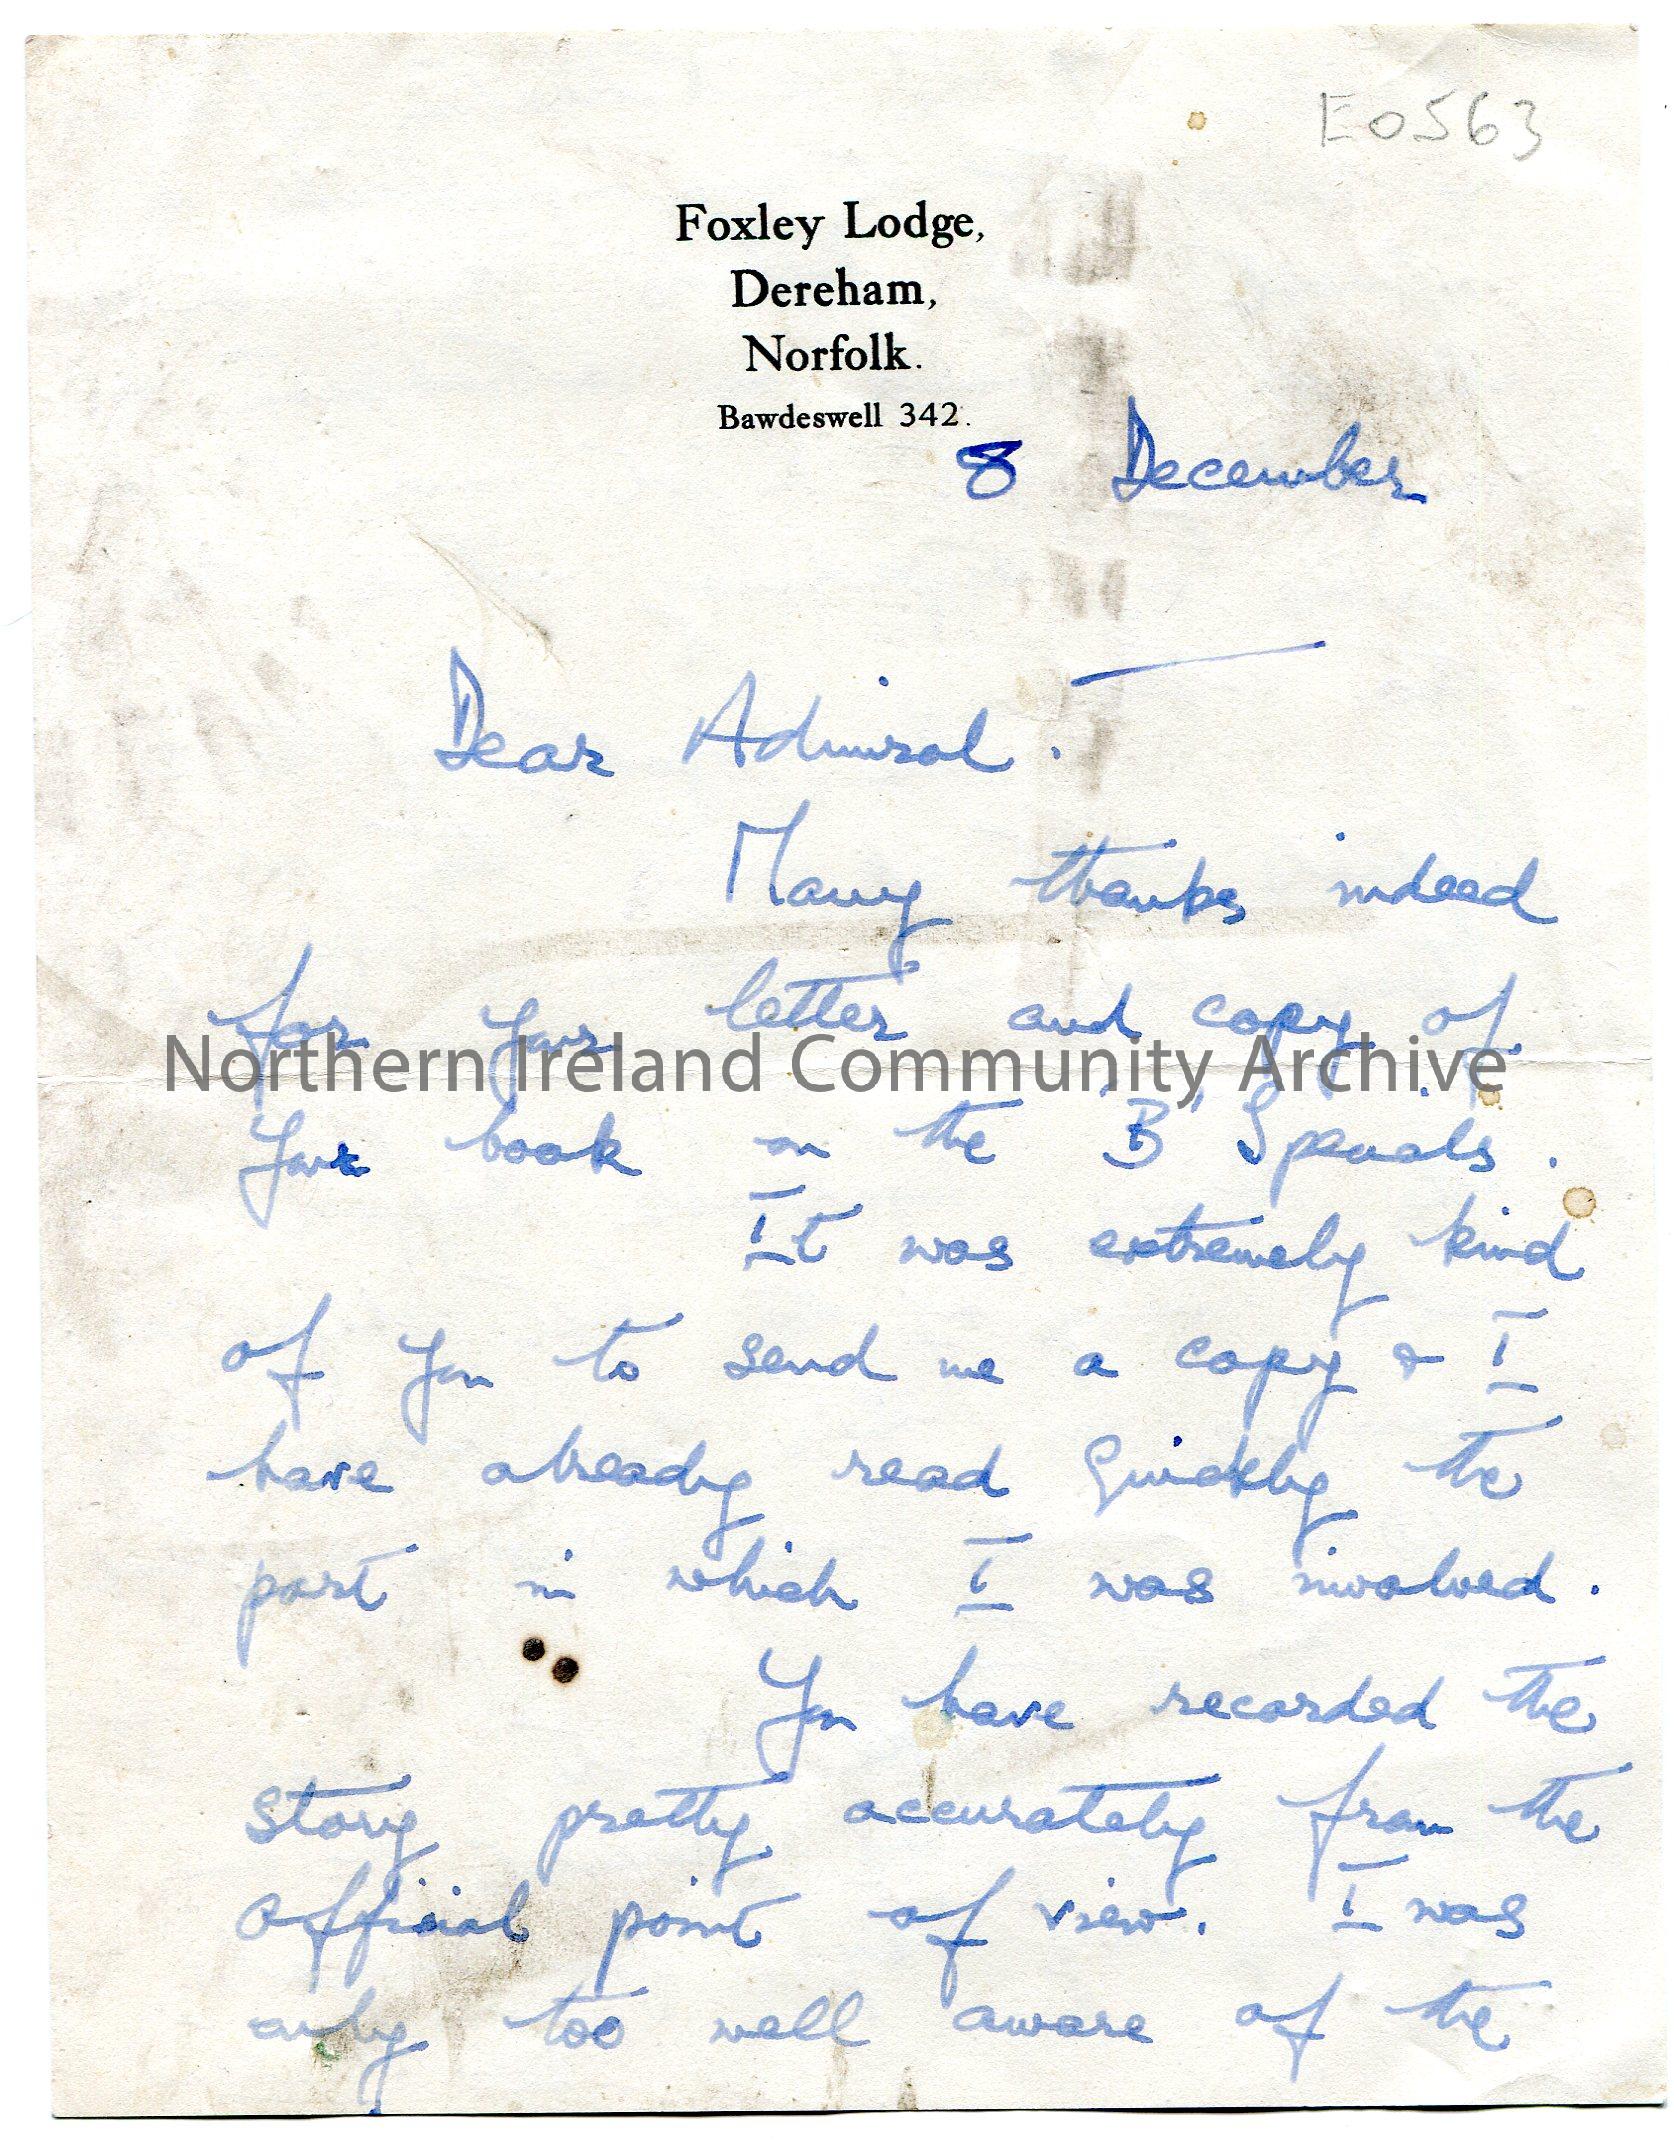 E0563
Foxley Lodge,
Dereham,
Norfolk.
Bawdeswell 342.
8 December
Dear Admiral.
Many thanks indeed
for your letter and copy of
Northern Ireland Community Archive
your book on the 'B' Specials.
It was extremely kind
of you to send me a copy & I
have already read quickly the
part in which I was involved.
You have recorded the
story pretty accurately from the
official point of view. I was
only too well aware of the